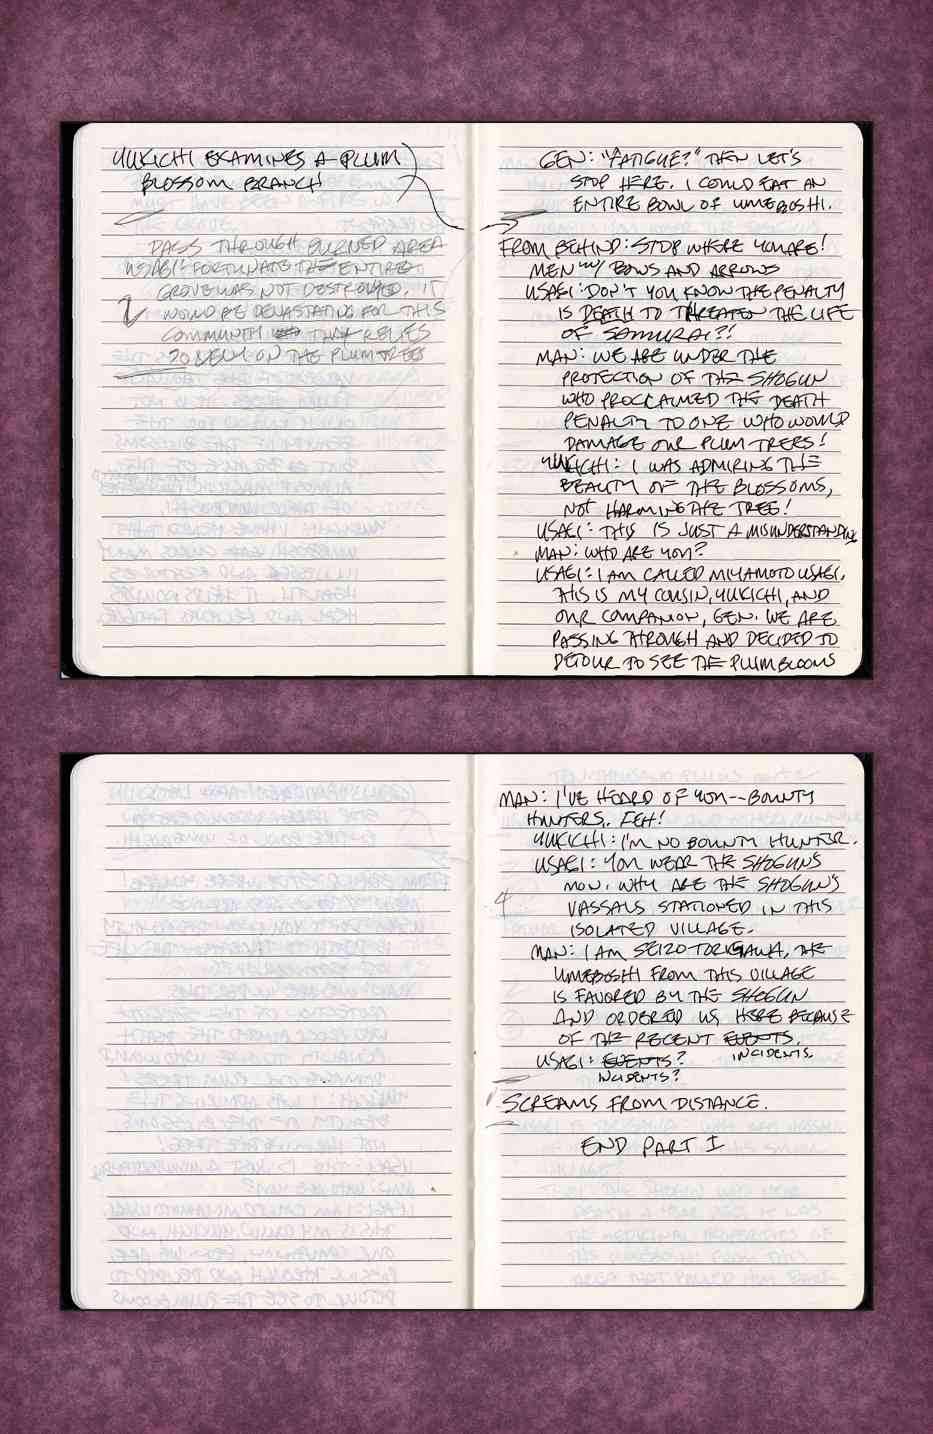 YUKICHI EXAMINES A PLUM
BLOSSOM BRANCH
PASS THROUGH BURNED AREA
USAGI: FORTUNATE THE ENTIRE
GROVE WAS NOT DESTROYED. IT
WOULD BE DEVASTATING FOR THIS
COMMUNITY THAT RELIES
SO HEAVILY ON THE PLUM TREES
2
GEN: "FATIGUE?" THEN LET'S
STOP HERE. I COULD EAT AN
ENTIRE BOWL OF UMEBOSHI.
FROM BEHIND: STOP WHERE YOU ARE!
MEN W/ BOWS AND ARROWS
USAGI: DON'T YOU KNOW THE PENALTY
IS DEATH TO THREATEN THE LIFE
OF SAMURAI?!
MAN: WE ARE UNDER THE
PROTECTION OF THE SHOGUN
WHO PROCCAIMED THE DEATH
PENALTY TO ONE WHO WOULD
DAMAGE OUR PLUM TREES!
YUKICHI: I WAS ADMIRING THE
BEAUTY OF THE BLOSSOMS,
NOT HARMING THE TREE!
USAGI: THIS IS JUST A MISUNDERSTANDING
MAN: WHO ARE YOU?
USAGI: I AM CALLED MIYAMOTO USAGI.
THIS IS MY COUSIN, YUKICHI, AND
OUR COMPANION, GEN. WE ARE
PASSING THROUGH AND DECIDED TO
DETOUR TO SEE THE PLUM BLOOMS
MAN: I'VE HEARD OF YOU--BOUNTY
HUNTERS. FEH!
YUKICHI: I'M NO BOUNTY HUNTER.
USAGI: YOU WEAR THE SHOGUN'S
MON. WHY ARE THE SHOGUN'S
VASSALS STATIONED IN THIS
ISOLATED VILLAGE.
4
MAN: I AM SEIZO TORIGAWA, THE
UMEBOSHI FROM THIS VILLAGE
IS FAVORED BY THE SHOGUN
AND ORDERED US HERE BECAUSE
OF THE RECENT EVENTS.
INCIDENTS.
USAGI: EVENTS?
INCIDENTS?
SCREAMS FROM DISTANCE.
END PART I